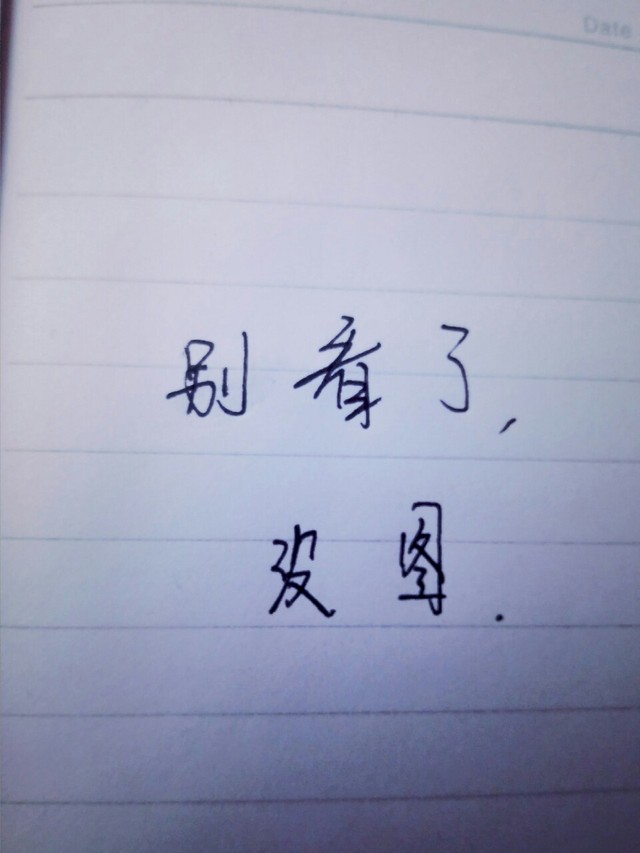 Date
别看了,
没图.